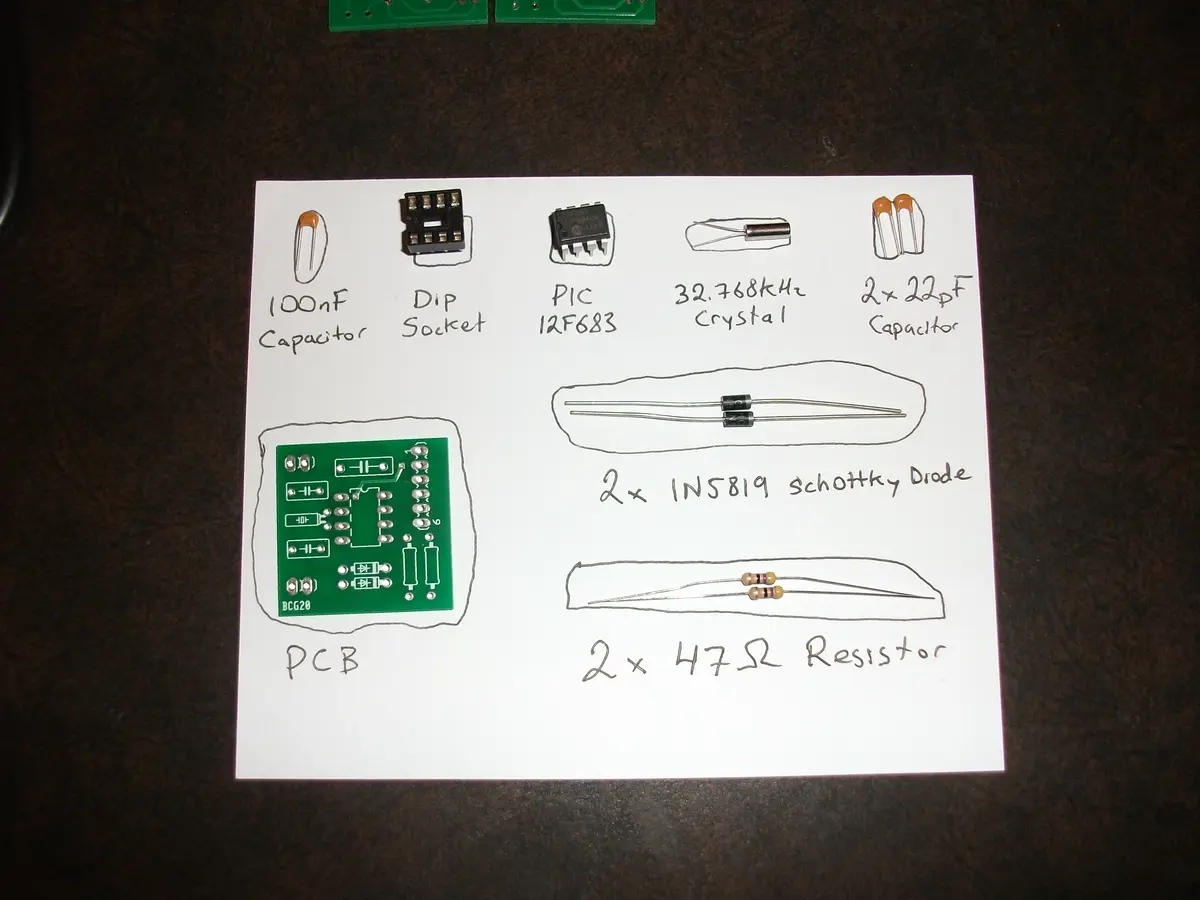 100nF
Capacitor
Dip
Socket
PIC
12F683
32.768kHz
Crystal
2x 22pF
Capacitor
2x 1N5819 Schottky Diode
BCG20
6
PCB
2x 47Ω Resistor